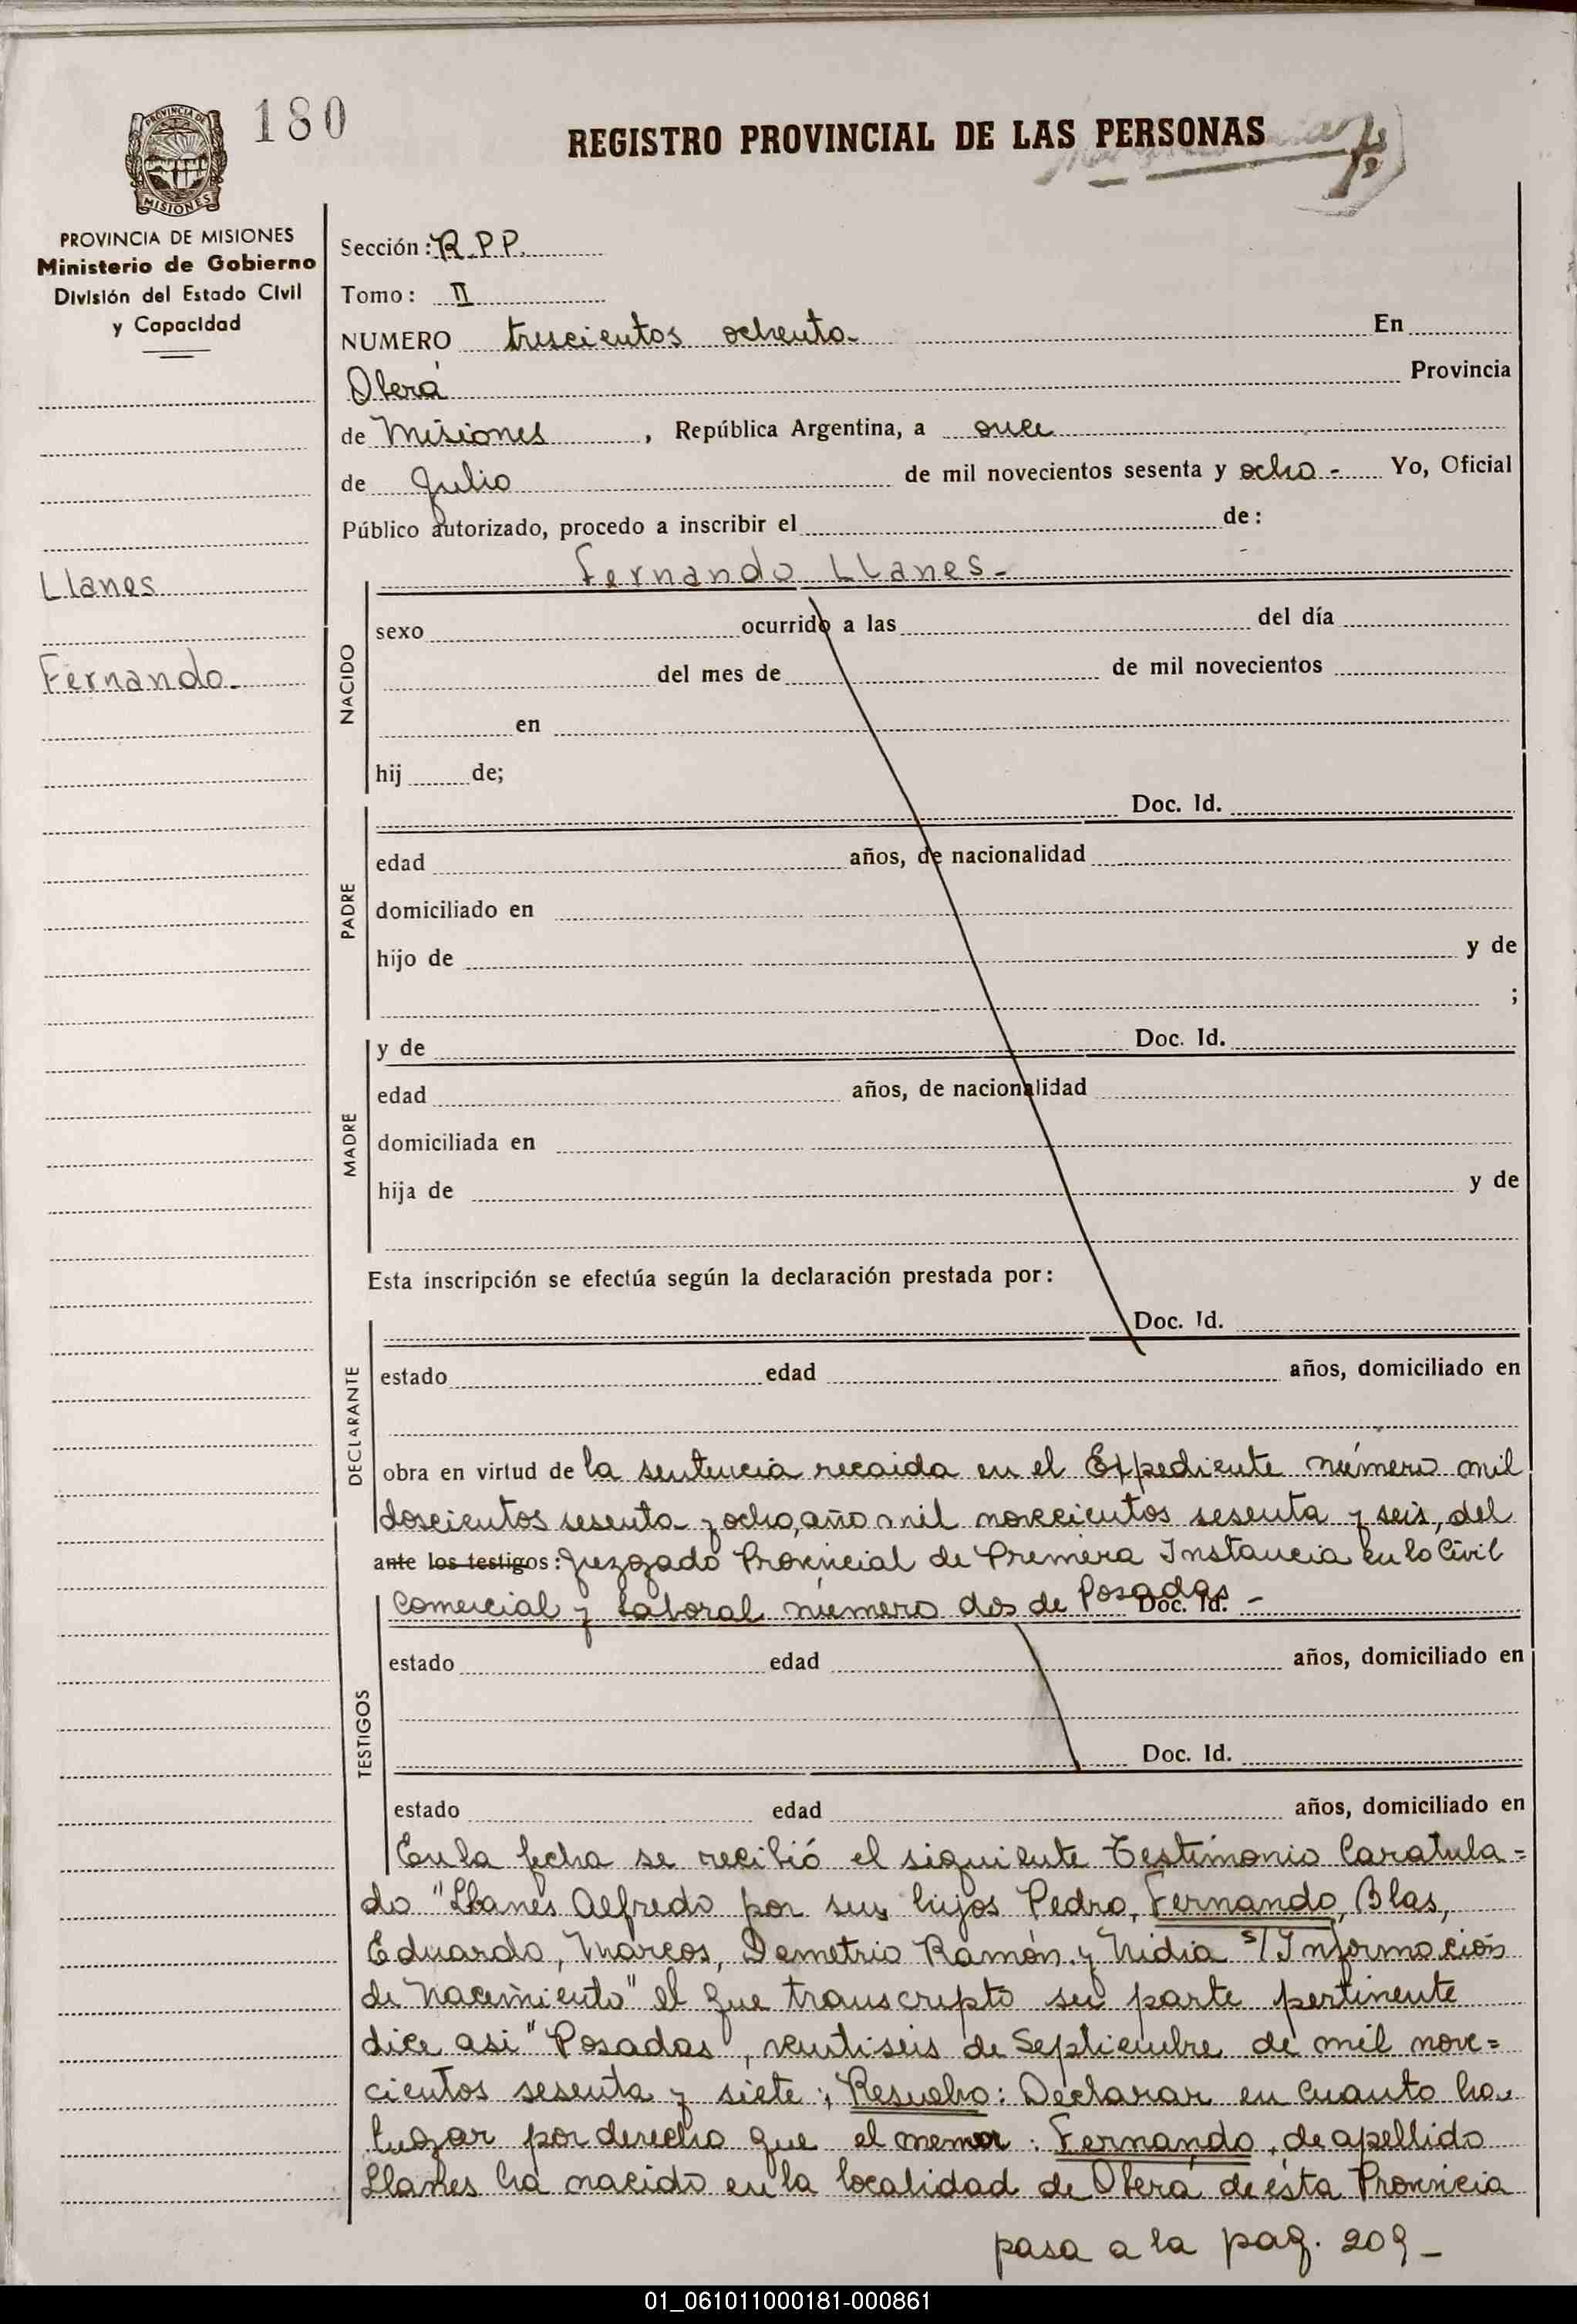 180
REGISTRO PROVINCIAL DE LAS PERSONAS
PROVINCIA DE
MISIONES
PROVINCIA DE MISIONES
Ministerio de Gobierno
División del Estado Civil
y Capacidad
Llanes
Fernando.
Sección: R.P.P.
Tomo: II
NUMERO trescientos ochenta- En
Oberá Provincia
de Misiones, República Argentina, a once
de Julio de mil novecientos sesenta y ocho - Yo, Oficial
Público autorizado, procedo a inscribir el de:
Fernando Llanes-
NACIDO
sexo ocurrido a las del día
del mes de de mil novecientos
en
hij de;
PADRE
Doc. Id.
edad años, de nacionalidad
domiciliado en
hijo de y de
;
MADRE
y de Doc. Id.
edad años, de nacionalidad
domiciliada en
hija de y de
Esta inscripción se efectúa según la declaración prestada por:
DECLARANTE
Doc. Id.
estado edad años, domiciliado en
obra en virtud de la sentencia recaida en el Expediente número mil
doscientos sesenta y ocho, año mil novecientos sesenta y seis, del
ante los testigos: Juzgado Provincial de Primera Instancia en lo Civil
Comercial y Laboral número dos de Posadas - Doc. Id.
TESTIGOS
estado edad años, domiciliado en
Doc. Id.
estado edad años, domiciliado en
En la fecha se recibió el siguiente Testimonio Caratula=
do "Llanes Alfredo por sus hijos Pedro, Fernando, Blas,
Eduardo, Marcos, Demetrio Ramón y Nidia s/Información
de Nacimiento" el que transcripto su parte pertinente
dice asi "Posadas, veintiseis de Septiembre de mil nove=
cientos sesenta y siete; Resuelvo: Declarar en cuanto ha
lugar por derecho que el menor: Fernando, de apellido
Llanes ha nacido en la localidad de Oberá, de ésta Provincia
pasa a la pag. 209-
01_061011000181-000861